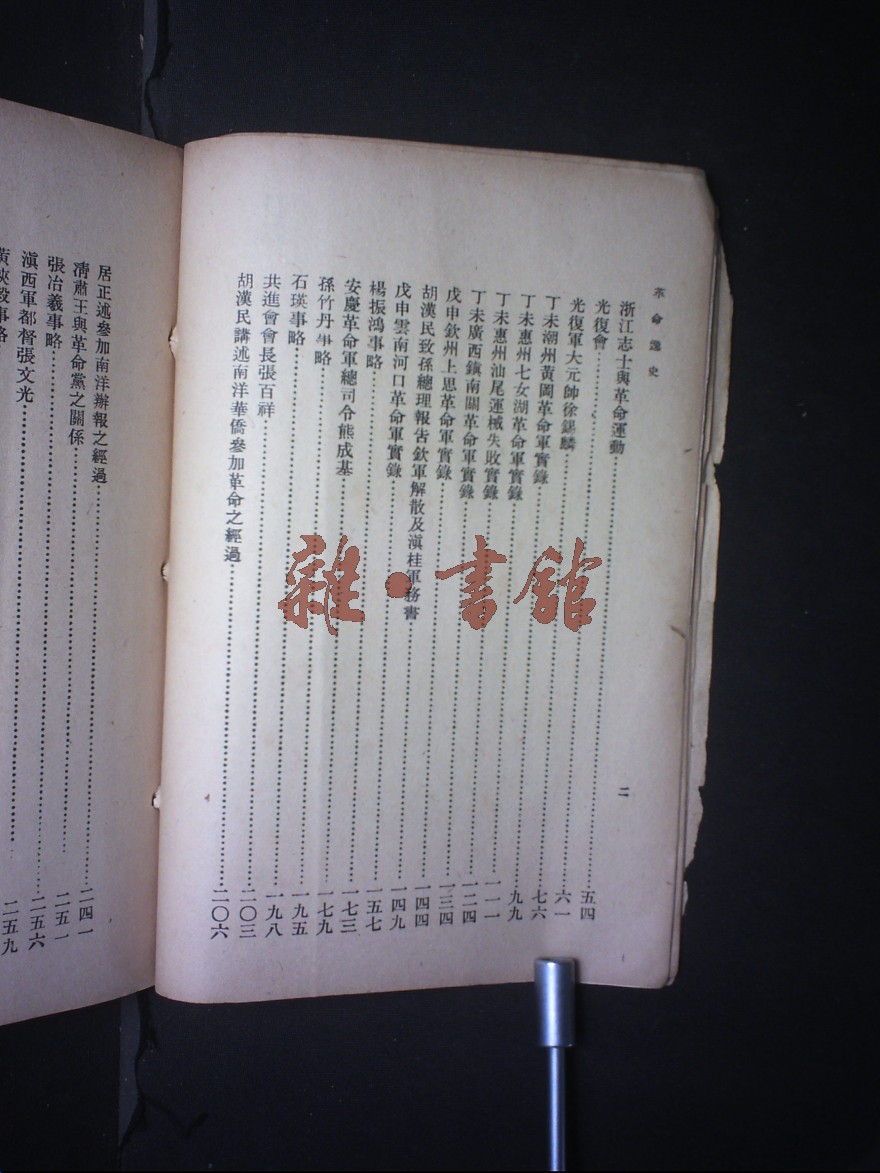 革命逸史
二
浙江志士與革命運動……五四
光復會……六一
光復軍大元帥徐錫麟……七六
丁未潮州黃岡革命軍實錄……九九
丁未惠州七女湖革命軍實錄……一一一
丁未惠州汕尾運械失敗實錄……一二四
丁未廣西鎮南關革命軍實錄……一三四
戊申欽州上思革命軍實錄……一四四
胡漢民致孫總理報告欽軍解散及滇桂軍務書……一四九
戊申雲南河口革命軍實錄……一五七
楊振鴻事略……一七三
安慶革命軍總司令熊成基……一七九
孫竹丹事略……一九五
石瑛事略……一九八
共進會會長張百祥……二〇三
胡漢民講述南洋華僑參加革命之經過……二〇六
居正述參加南洋辦報之經過……二四一
清肅王與革命黨之關係……二五一
張冶羲事略……二五六
滇西軍都督張文光……二五九
黃俠毅事略
雜·書館